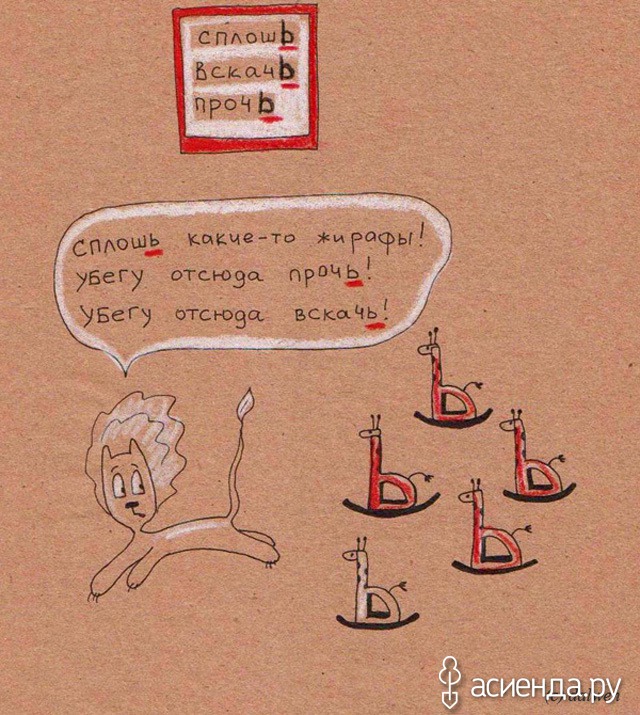 сплошь
вскачь
прочь
сплошь какие-то жирафы!
убегу отсюда прочь!
убегу отсюда вскачь!
асиенда.ру